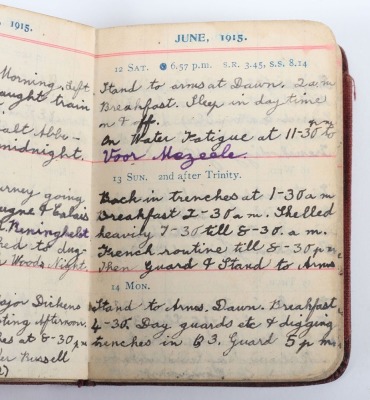 1915.
Morning left
aught train
alt Abbe-
midnight.
urney going
ogne & Calais
Reninghelst
hed to dug-
Woods. Night.
ajor Dickens
sting Afternoon.
es at 8-30 p.m
Russell
JUNE, 1915.
12 SAT. 6.57 p.m. S.R. 3.45, S.S. 8.14
Stand to arms at Dawn. 2 a.m
Breakfast. Sleep in day time
on & off.
On Water Fatigue at 11-30 p.m to
Voor Mezeele.
13 SUN. 2nd after Trinity.
Back in trenches at 1-30 a m
Breakfast 2-30 a.m. Shelled
heavily 7-30 till 8-30. a. m.
Trench routine till 8-30 p.m
Then Guard & Stand to Arms
14 MON.
Stand to Arms. Dawn. Breakfast
4-30. Day guards etc & digging
trenches in B3. Guard 5 p m